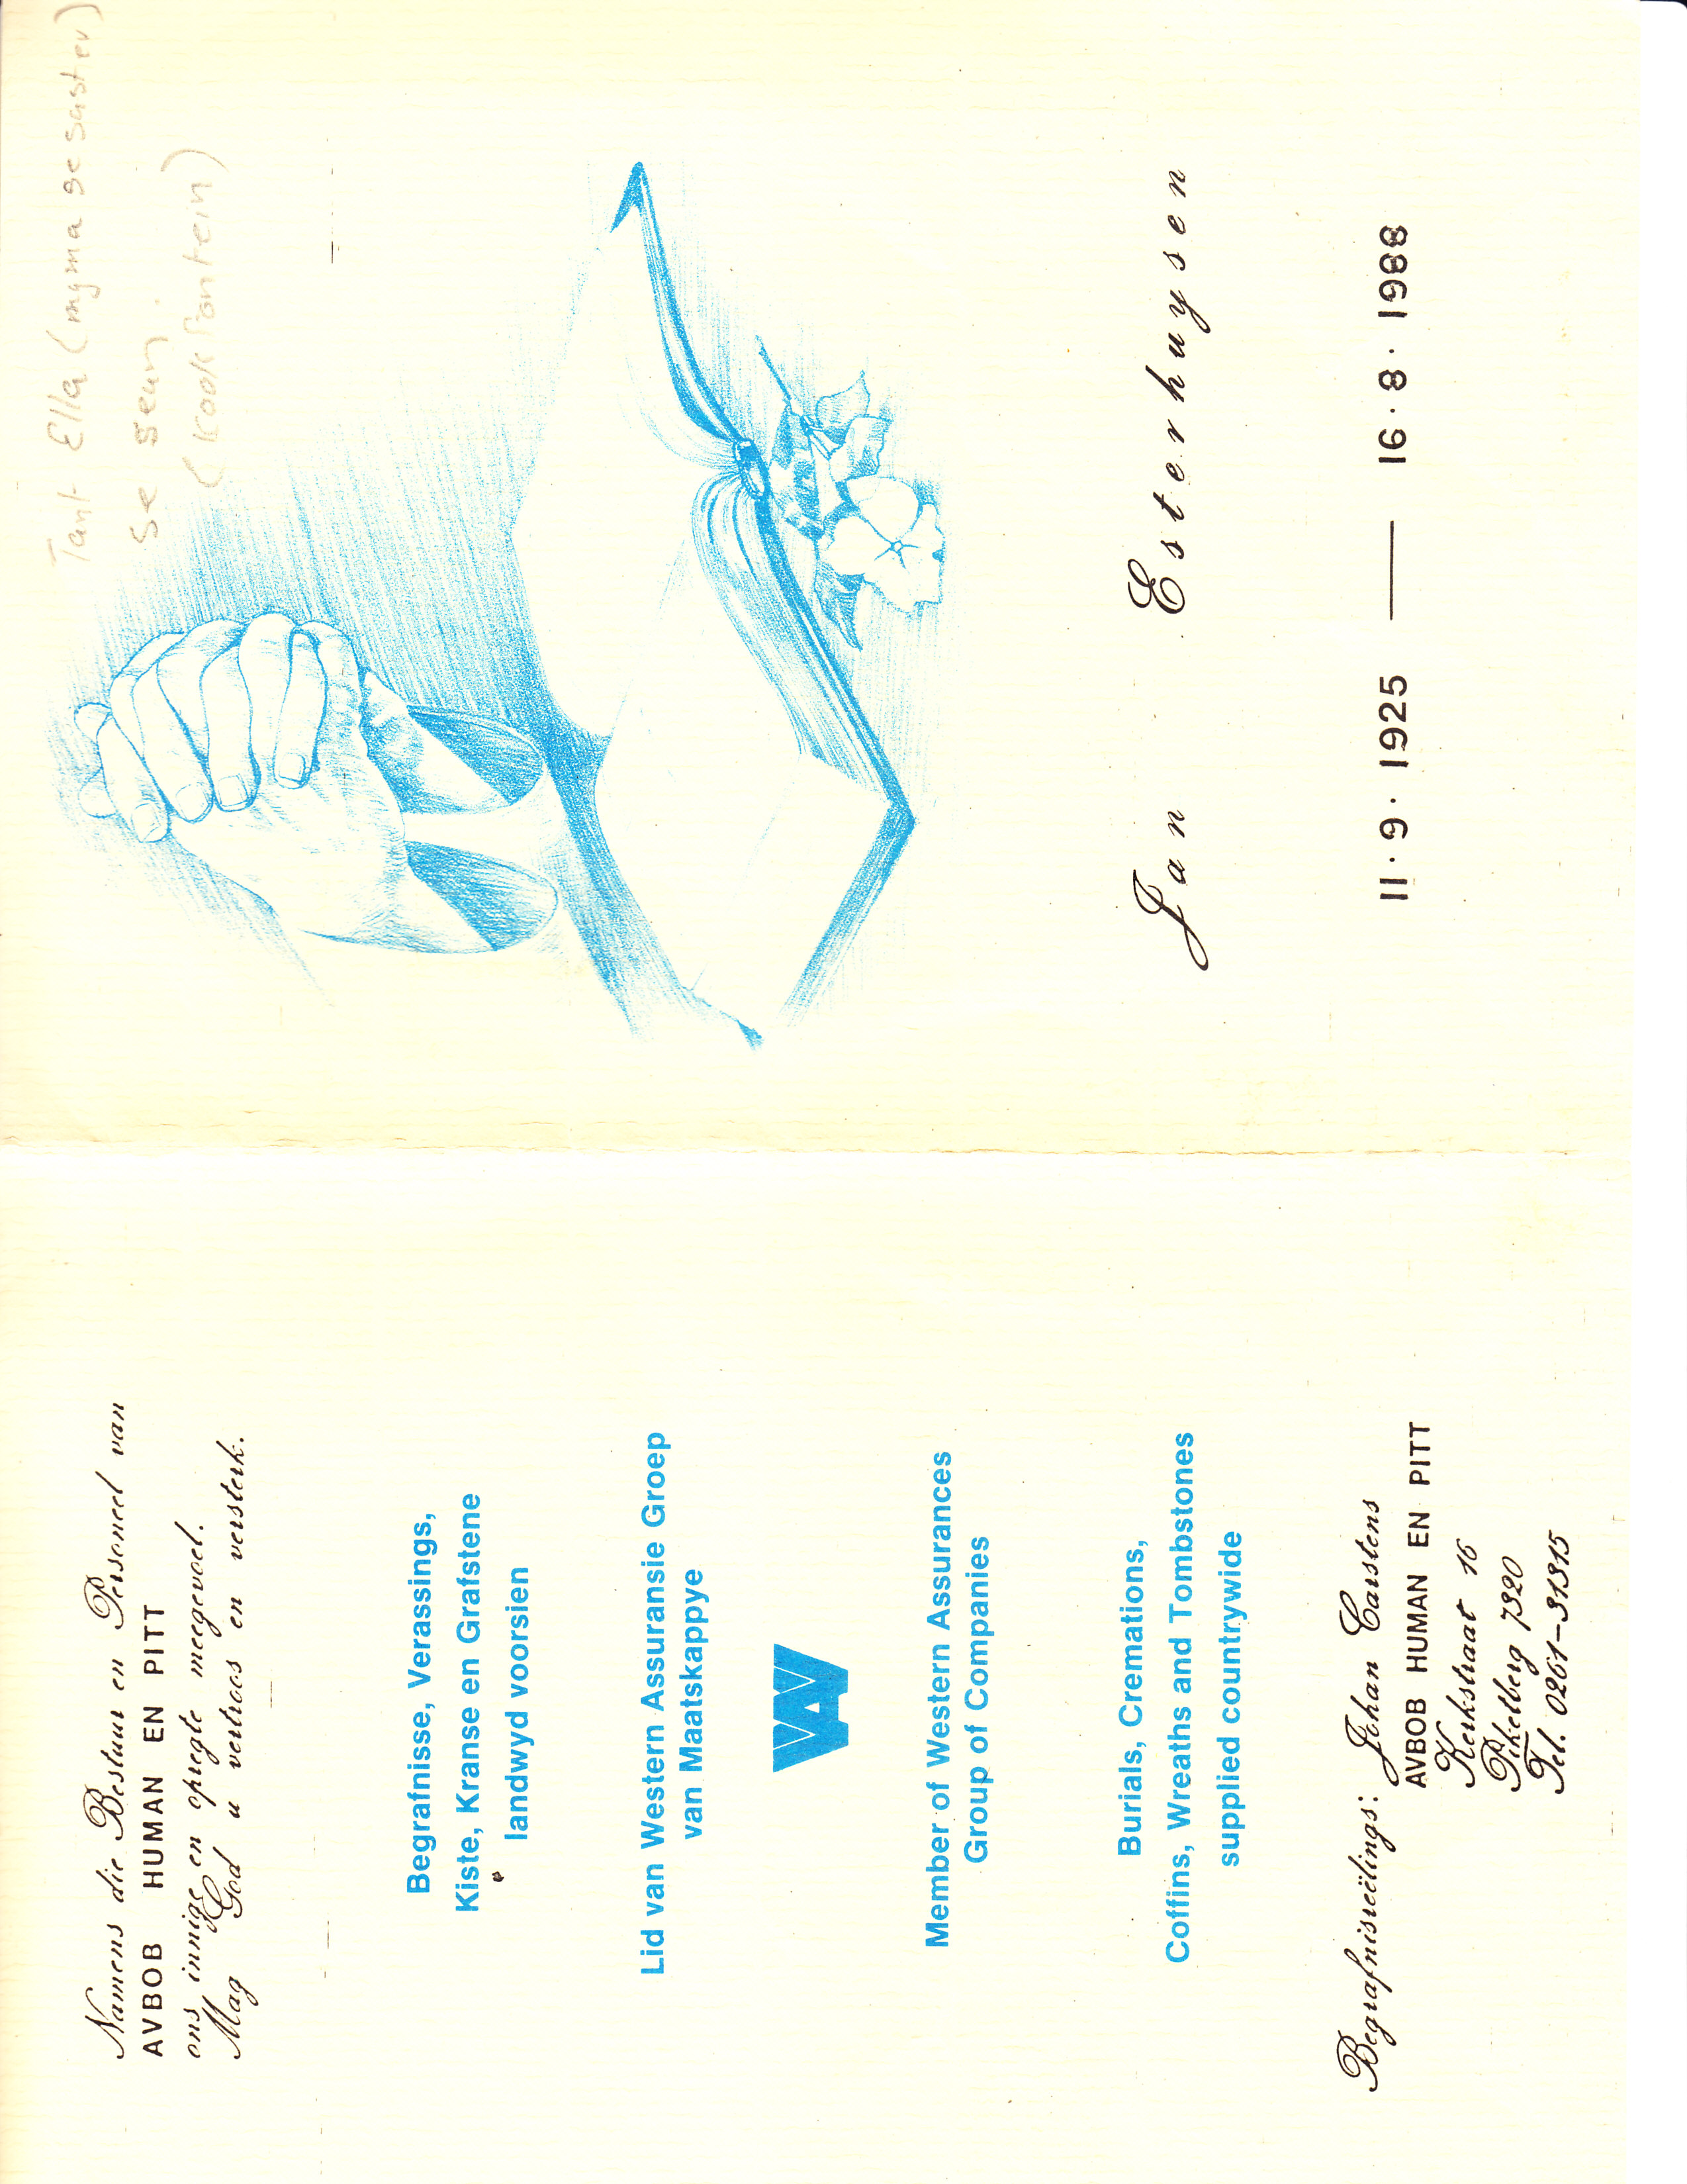 Namens die Bestuur en Personeel van
AVBOB HUMAN EN PITT
ons innige en opregte meegevoel.
Mag God u vertroos en versterk.
Begrafnisse, Verassings,
Kiste, Kranse en Grafstene
landwyd voorsien
Lid van Western Assuransie Groep
van Maatskappye
WA
Member of Western Assurances
Group of Companies
Burials, Cremations,
Coffins, Wreaths and Tombstones
supplied countrywide
Begrafnisreëlings: Johan Carstens
AVBOB HUMAN EN PITT
Kerkstraat 16
Piketberg 7320
Tel. 0261-31315
Tant Ella (my ma se suster)
se seun.
(Kookfontein)
Jan Esterhuysen
11·9·1925 — 16·8·1988